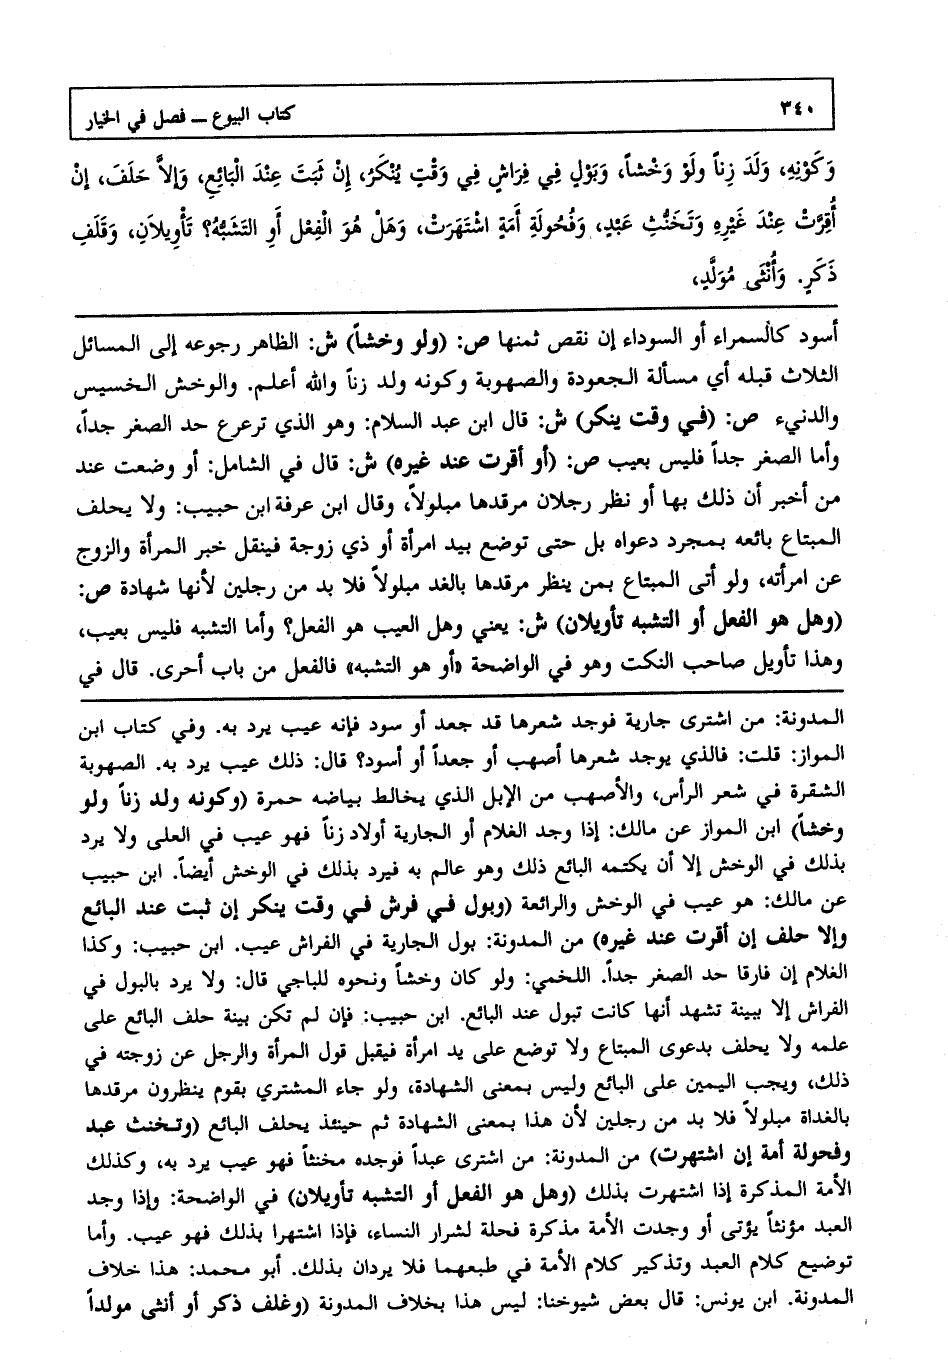 ٣٤٠
كتاب البيوع ــ فصل في الخيار
وَكَوْنِهِ، وَلَدَ زِناً ولَوْ وَخْشاً، وَبَوْلٍ فِي فِرَاشٍ فِي وَقْتٍ يُنْكَرُ، إِنْ ثَبَتَ عِنْدَ الْبَائِعِ، وَإِلاَّ حَلَفَ، إنْ
أُقِرَّتْ عِنْدَ غَيْرِهِ وَتَخَنُّثِ عَبْدٍ، وَفُحُولَةِ أَمَةٍ اشْتَهَرَتْ، وَهَلْ هُوَ الْفِعْل أَوِ التَشَبُّهُ؟ تَأْوِيلاَنِ، وَقَلَفِ
ذَكَرٍ. وَأُنْثَى مُوَلَّدٍ،
أسود كالسمراء أو السوداء إن نقص ثمنها ص: (ولو وخشاً) ش: الظاهر رجوعه إلى المسائل
الثلاث قبله أي مسألة الجعودة والصهوبة وكونه ولد زناً والله أعلم. والوخش الخسيس
والدنيء ص: (في وقت ينكر) ش: قال ابن عبد السلام: وهو الذي ترعرع حد الصغر جداً،
وأما الصغر جداً فليس بعيب ص: (أو أقرت عند غيره) ش: قال في الشامل: أو وضعت عند
من أخبر أن ذلك بها أو نظر رجلان مرقدها مبلولاً، وقال ابن عرفة ابن حبيب: ولا يحلف
المبتاع بائعه بمجرد دعواه بل حتى توضع بيد امرأة أو ذي زوجة فينقل خبر المرأة والزوج
عن امرأته، ولو أتى المبتاع بمن ينظر مرقدها بالغد مبلولاً فلا بد من رجلين لأنها شهادة ص:
(وهل هو الفعل أو التشبه تأويلان) ش: يعني وهل العيب هو الفعل؟ وأما التشبه فليس بعيب،
وهذا تأويل صاحب النكت وهو في الواضحة «أو هو التشبه» فالفعل من باب أحرى. قال في
المدونة: من اشترى جارية فوجد شعرها قد جعد أو سود فإنه عيب يرد به. وفي كتاب ابن
المواز: قلت: فالذي يوجد شعرها أصهب أو جعداً أو أسود؟ قال: ذلك عيب يرد به. الصهوبة
الشقرة في شعر الرأس، والأصهب من الإبل الذي يخالط بياضه حمرة (وكونه ولد زناً ولو
وخشاً) ابن المواز عن مالك: إذا وجد الغلام أو الجارية أولاد زناً فهو عيب في العلى ولا يرد
بذلك في الوخش إلا أن يكتمه البائع ذلك وهو عالم به فيرد بذلك في الوخش أيضاً. ابن حبيب
عن مالك: هو عيب في الوخش والرائعة (وبول في فرش في وقت ينكر إن ثبت عند البائع
وإلا حلف إن أقرت عند غيره) من المدونة: بول الجارية في الفراش عيب. ابن حبيب: وكذا
الغلام إن فارقا حد الصغر جداً. اللخمي: ولو كان وخشاً ونحوه للباجي قال: ولا يرد بالبول في
الفراش إلا ببينة تشهد أنها كانت تبول عند البائع. ابن حبيب: فإن لم تكن بينة حلف البائع على
علمه ولا يحلف بدعوى المبتاع ولا توضع على يد امرأة فيقبل قول المرأة والرجل عن زوجته في
ذلك، ويجب اليمين على البائع وليس بمعنى الشهادة، ولو جاء المشتري بقوم ينظرون مرقدها
بالغداة مبلولاً فلا بد من رجلين لأن هذا بمعنى الشهادة ثم حينئذ يحلف البائع (وتخنث عبد
وفحولة أمة إن اشتهرت) من المدونة: من اشترى عبداً فوجده مخنثاً فهو عيب يرد به، وكذلك
الأمة المذكرة إذا اشتهرت بذلك (وهل هو الفعل أو التشبه تأويلان) في الواضحة: وإذا وجد
العبد مؤنثاً يؤتى أو وجدت الأمة مذكرة فحلة لشرار النساء، فإذا اشتهرا بذلك فهو عيب. وأما
توضيع كلام العبد وتذكير كلام الأمة في طبعهما فلا يردان بذلك. أبو محمد: هذا خلاف
المدونة. ابن يونس: قال بعض شيوخنا: ليس هذا بخلاف المدونة (وغلف ذكر أو أنثى مولداً